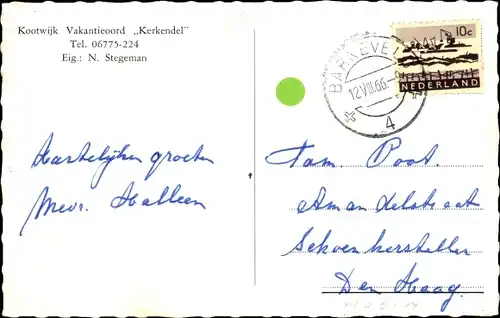 Kootwijk Vakantieoord „Kerkendel"
Tel. 06775-224
Eig.: N. Stegeman
10c
NEDERLAND
BARNEVELD
12.VIII.66.
4
Hartelijke groeten
Mevr. Halleen
Fam. Poot.
Amandelstraat
Schoenhersteller
Den Haag.